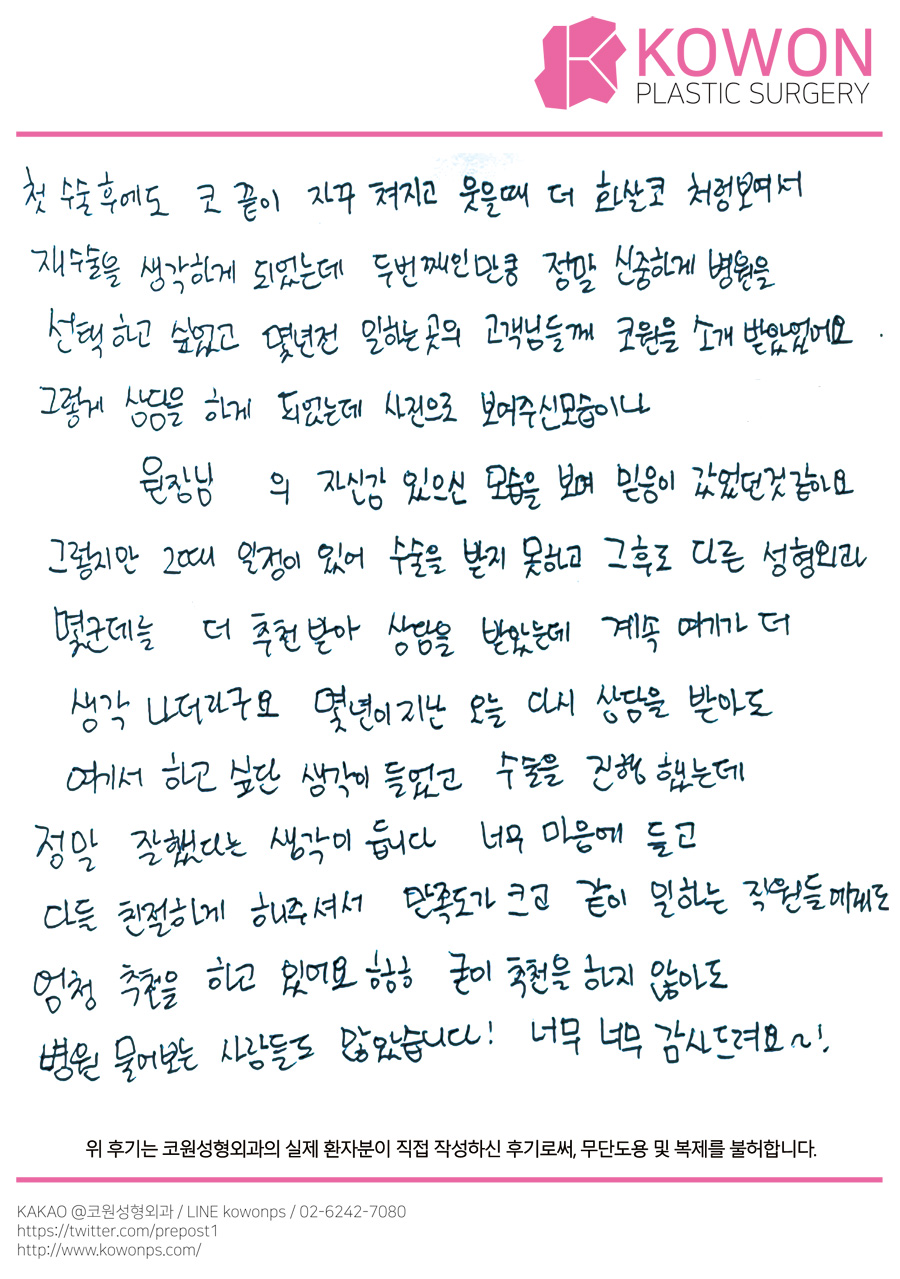 KOWON
PLASTIC SURGERY
첫 수술후에도 코 끝이 자꾸 쳐지고 웃을때 더 화살코 처럼보여서
재수술을 생각하게 되었는데 두번째인만큼 정말 신중하게 병원을
선택하고 싶었고 몇년전 일하는곳의 고객님들께 코원을 소개 받았었어요.
그렇게 상담을 하게 되었는데 사진으로 보여주신모습이나
원장님 의 자신감 있으신 모습을 보며 믿음이 갔었던것같아요
그렇지만 그때 일정이 있어 수술을 받지 못하고 그후로 다른 성형외과
몇군데를 더 추천받아 상담을 받았는데 계속 여기가 더
생각 나더라구요 몇년이지난 오늘 다시 상담을 받아도
여기서 하고 싶단 생각이 들었고 수술을 진행 했는데
정말 잘했다는 생각이 듭니다 너무 마음에 들고
다들 친절하게 해주셔서 만족도가 크고 같이 일하는 직원들에게도
엄청 추천을 하고 있어요 하하하 굳이 추천을 하지 않아도
병원 물어보는 사람들도 많았습니다! 너무 너무 감사드려요~!
위 후기는 코원성형외과의 실제 환자분이 직접 작성하신 후기로써, 무단도용 및 복제를 불허합니다.
KAKAO @코원성형외과 / LINE kowonps / 02-6242-7080
https://twitter.com/prepost1
http://www.kowonps.com/